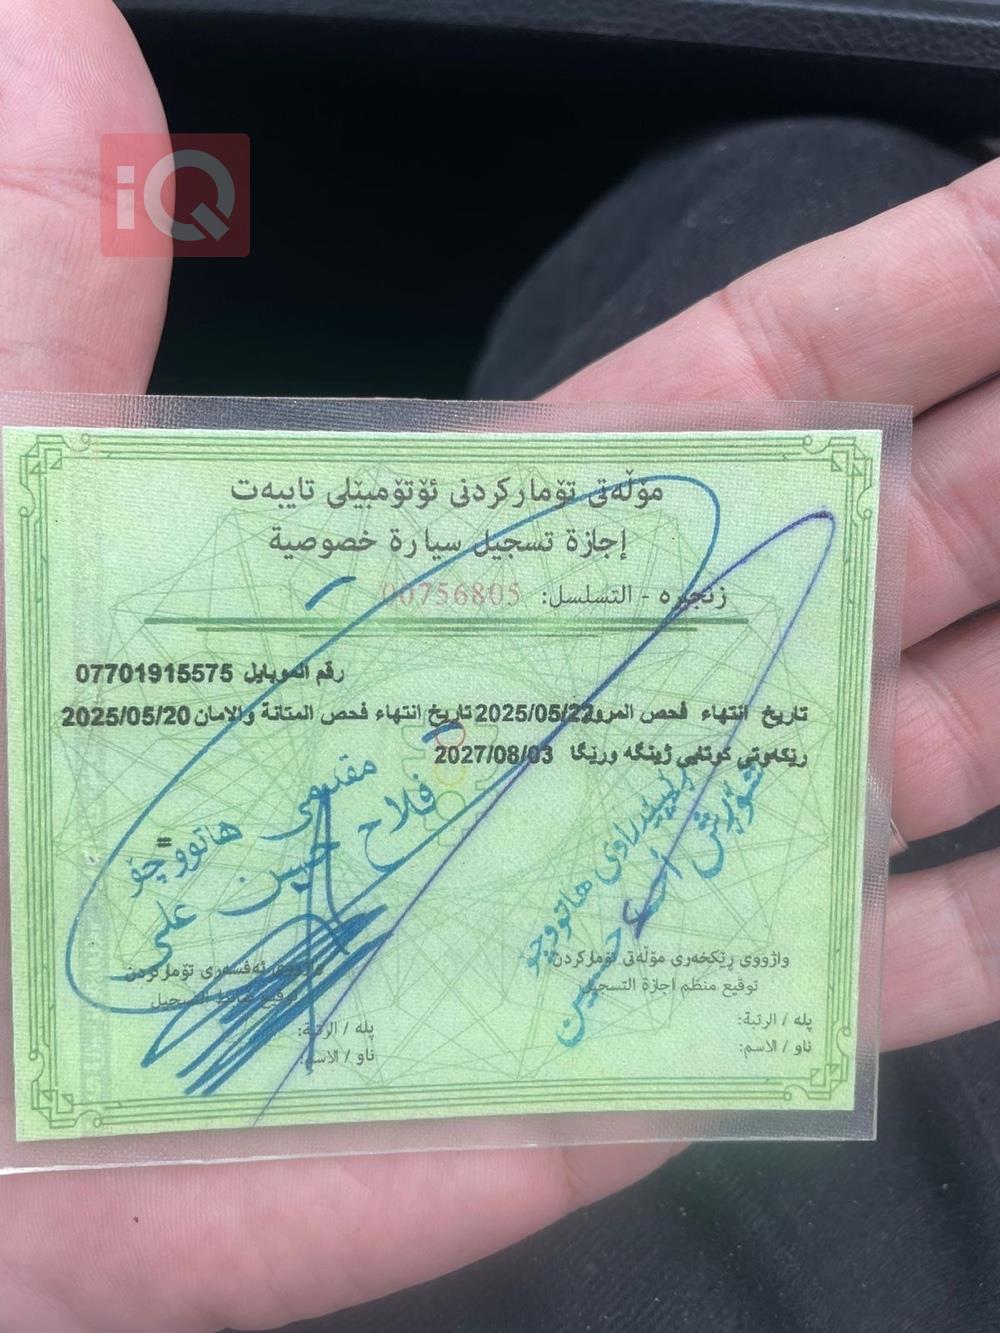 iQ
مۆڵەتی تۆمارکردنی ئۆتۆمبێلی تایبەت
إجازة تسجيل سيارة خصوصية
زنجیرە - التسلسل: 00756805
رقم الموبايل 07701915575
تاريخ انتهاء فحص المرور 2025/05/22 تاريخ انتهاء فحص المتانة والامان 2025/05/20
رێکەوتی کوتایی ژینگە ورێگا 2027/08/03
مقدمی هاتووچۆ
فلاح حسن علی
هاتووچۆ
حسین
واژووی ڕێکخەری مۆڵەتی تۆمارکردن
توقيع منظم اجازة التسجيل
پلە / الرتبة:
ناو / الاسم:
واژووی ئەفسەری تۆمارکردن
توقيع ضابط التسجيل
پلە / الرتبة:
ناو / الاسم: